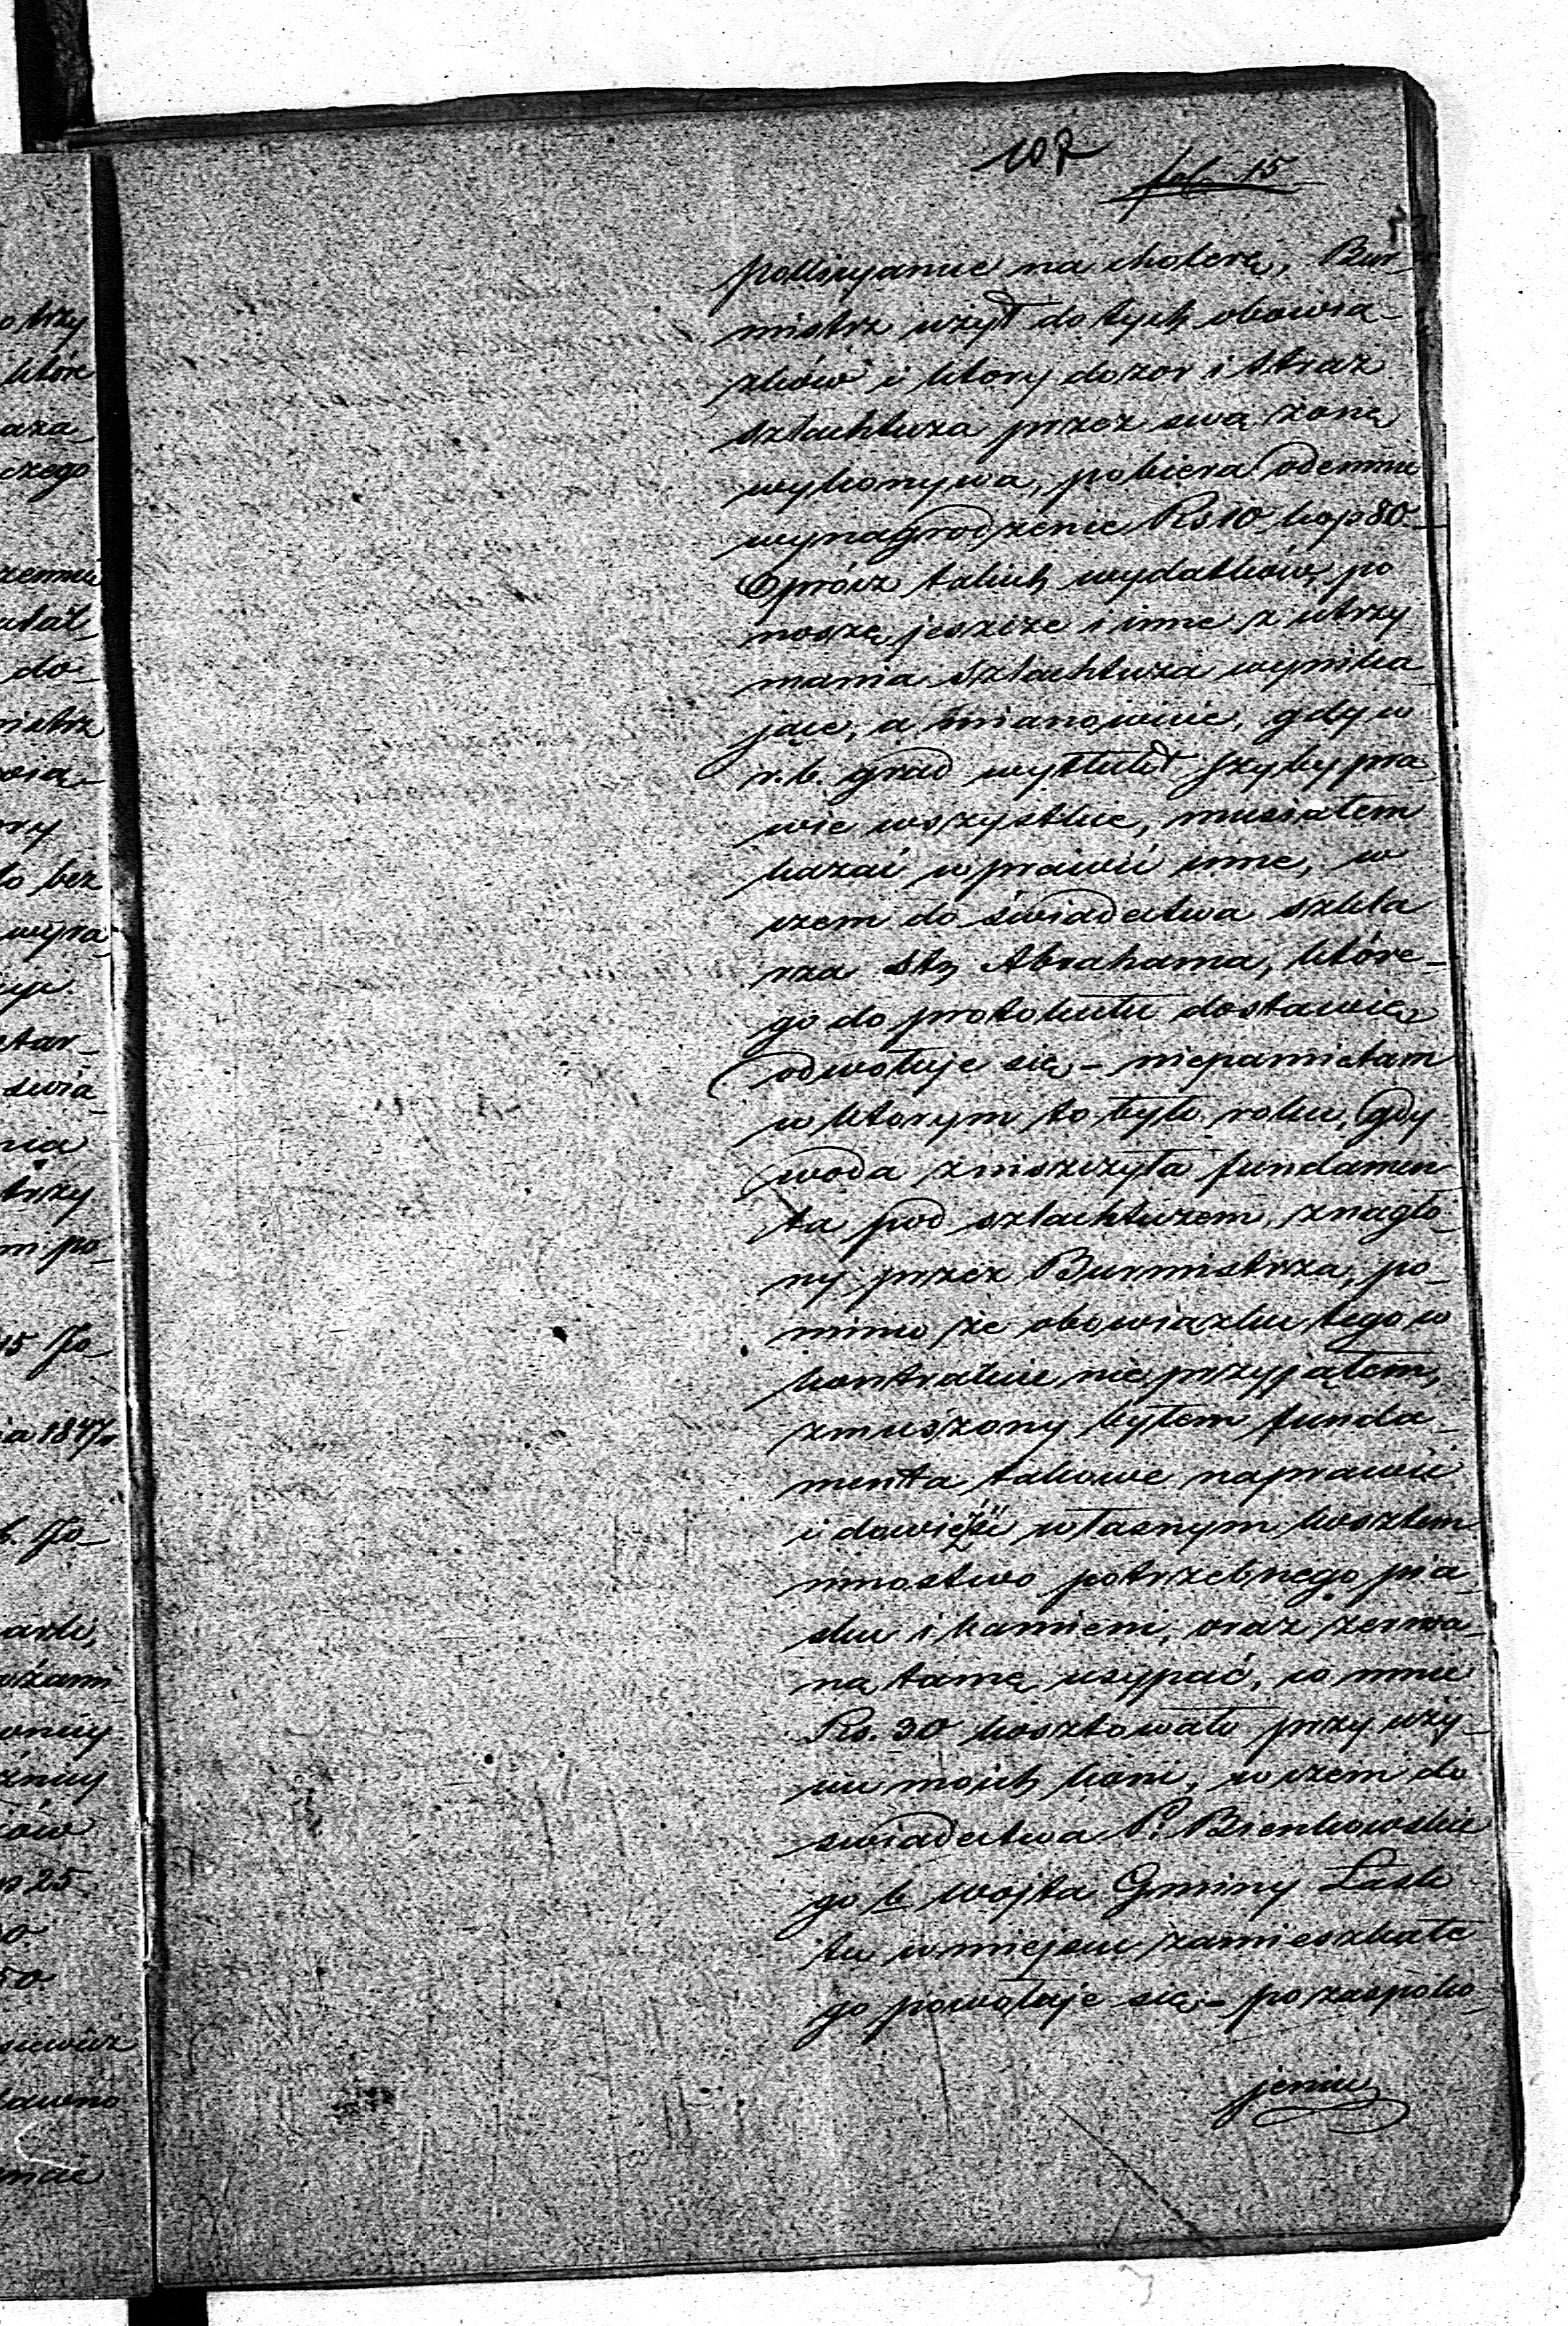 107
fol. 15
pollicyanue na cholerę, Bur-
mistrz użył do tych obowią-
zków i ktory dozor i straz
szlachtuza przez swą zonę
wykonywa, pobiera odemnie
wynagrodzenie Rs 10 kop 80.
Oprócz takich wydatków, po
noszę jeszcze i inne z utrzy
mania szlachtuza wynika
jące, a mianowicie, gdy w
r. b. grad wytłukł szyby pra
wie wszystkie, musiałem
kazać wprawić inne, w
czem do świadectwa szkla
rza Sth Abrahama, które-
go do protokułu dostawię
odwołuje się, - niepamietam
w ktorym to było roku, gdy
woda zniszczyła fundamen
ta pod szlachtuzem, znaglo-
ny przez Burmistrza, po-
mimo że obowiązku tego w
kontrakcie nie przyjąłem,
zmuszony byłem funda-
menta takowe naprawić
i dowieźść własnym kosztem
mnostwo potrzebnego pia-
sku i kamieni, oraz zerwa-
ną tamę usypać, co mnie
Rs. 30 kosztowało przy uży-
ciu moich koni, w czem do
swiadectwa P. Bienkowskie
go b. wojta Gminy Łask
tu w miejscu zamieszkałe
go powołuje się, - po zaspoko-
jeniu
o trzy
które
czego
zemnie
do-
mistrz
wią-
ory
lo bez
wyra-
star-
swia-
nia
trzy
m po-
15 Jo
ia 1847 r.
b. Jo-
ożami
ów
p 25
50
siewicz
dawno